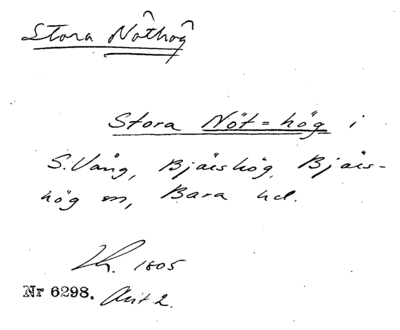 Stora Nöthög
Stora Nöt=hög i
S. Vång, Bjärshög, Bjärs-
hög sn, Bara hd.
1805
Nr 6298. Akt 2.